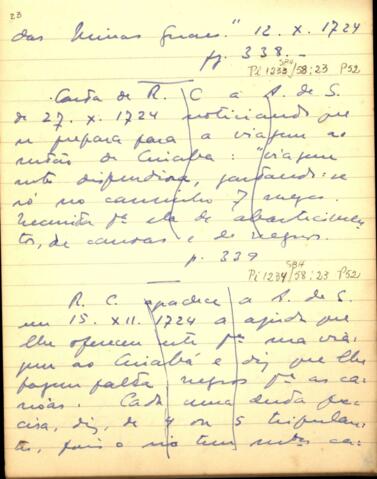 23
das Minas Geraes." 12. x. 1724
pg. 338.-
SBH
Pi 1233/58; 23 P52
Carta de R. C a A. de S.
de 27. x. 1724 noticiando que
se prepara para a viagem ao
sertão de Cuiabá: "viagem
mto dispendiosa, gastando-se
só no caminho 7 meses.
Necessita pa ela de abastecimen-
tos, de canoas e de negros.
p. 339
SBH
Pi 1234/58; 23 P52
R. C. agradece a A. de S.
em 15. XII. 1724 a ajuda que
lhe oferece pa sua via-
gem ao Cuiabá e diz que lhe
fazem falta negros pa as ca-
nôas. Cada uma destas pre-
cisa, diz, de 4 ou 5 tripulan-
tes, pois o rio tem mtas ca-